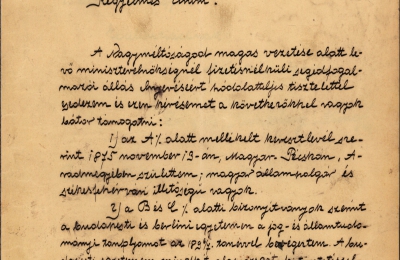 Kegyelmes Uram!
A Nagyméltóságod magas vezetése alatt le-
vő miniszterelnökségnél fizetésnélküli segédfogal-
mazói állás elnyeréséért hódolatteljes tisztelettel
esedezem és ezen kérésemet a következőkkel vagyok
bátor támogatni:
1) az A% alatt mellékelt keresztlevél sze-
rint 1875 november 13-án, Magyar-Pécskán, A-
radmegyében születtem; magyar állampolgár és
székesfehérvári illetőségű vagyok.
2) a B és C % alatti bizonyítványok szerint
a budapesti és berlini egyetemen a jog- és államtudo-
mányi tanfolyamot az tanévvel bevégeztem. A bu-